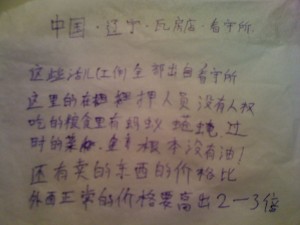 中国·辽宁·瓦房店·看守所.
这些活儿 全部出自看守所
这里的在押人员没有人权
吃的粮食里有蚂蚁 过
时的 根本没有油!
还有卖的东西的价格比
外面正常的价格要高出2-3倍